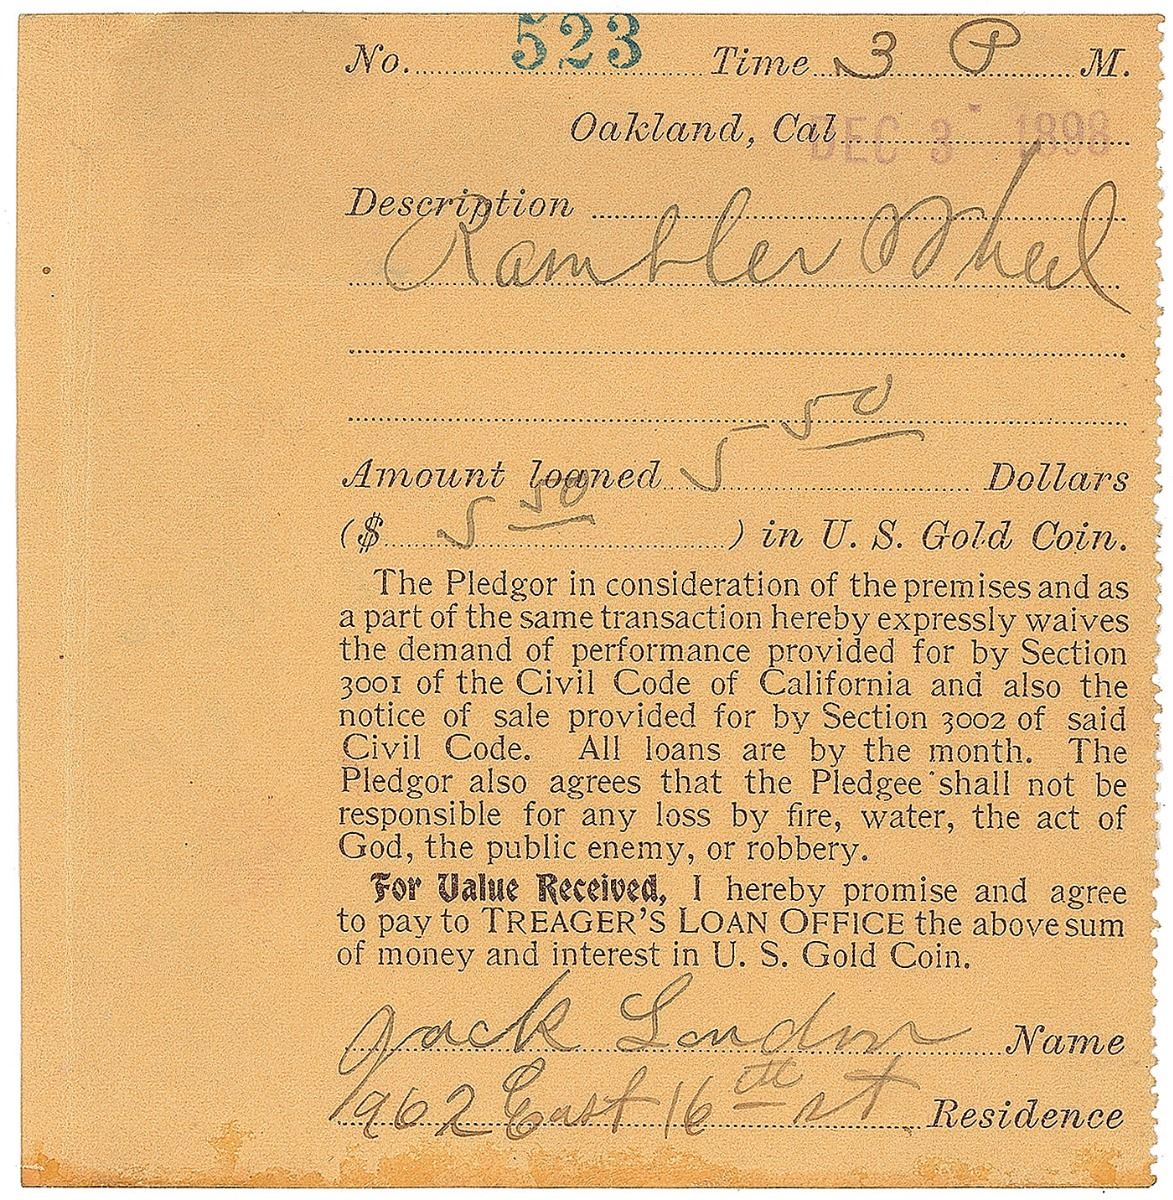 No. 523 Time 3 P M.
Oakland, Cal DEC 3 - 1898
Description
Rambler Wheel
5 50
Amount loaned Dollars
($ 5 50 ) in U. S. Gold Coin.
The Pledgor in consideration of the premises and as
a part of the same transaction hereby expressly waives
the demand of performance provided for by Section
3001 of the Civil Code of California and also the
notice of sale provided for by Section 3002 of said
Civil Code. All loans are by the month. The
Pledgor also agrees that the Pledgee shall not be
responsible for any loss by fire, water, the act of
God, the public enemy, or robbery.
For Value Received, I hereby promise and agree
to pay to TREAGER'S LOAN OFFICE the above sum
of money and interest in U. S. Gold Coin.
Jack London Name
962 East 16th st Residence